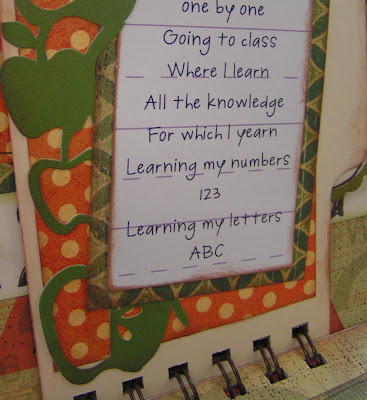 one by one
Going to class
Where I learn
All the knowledge
For which I yearn
Learning my numbers
123
Learning my letters
ABC